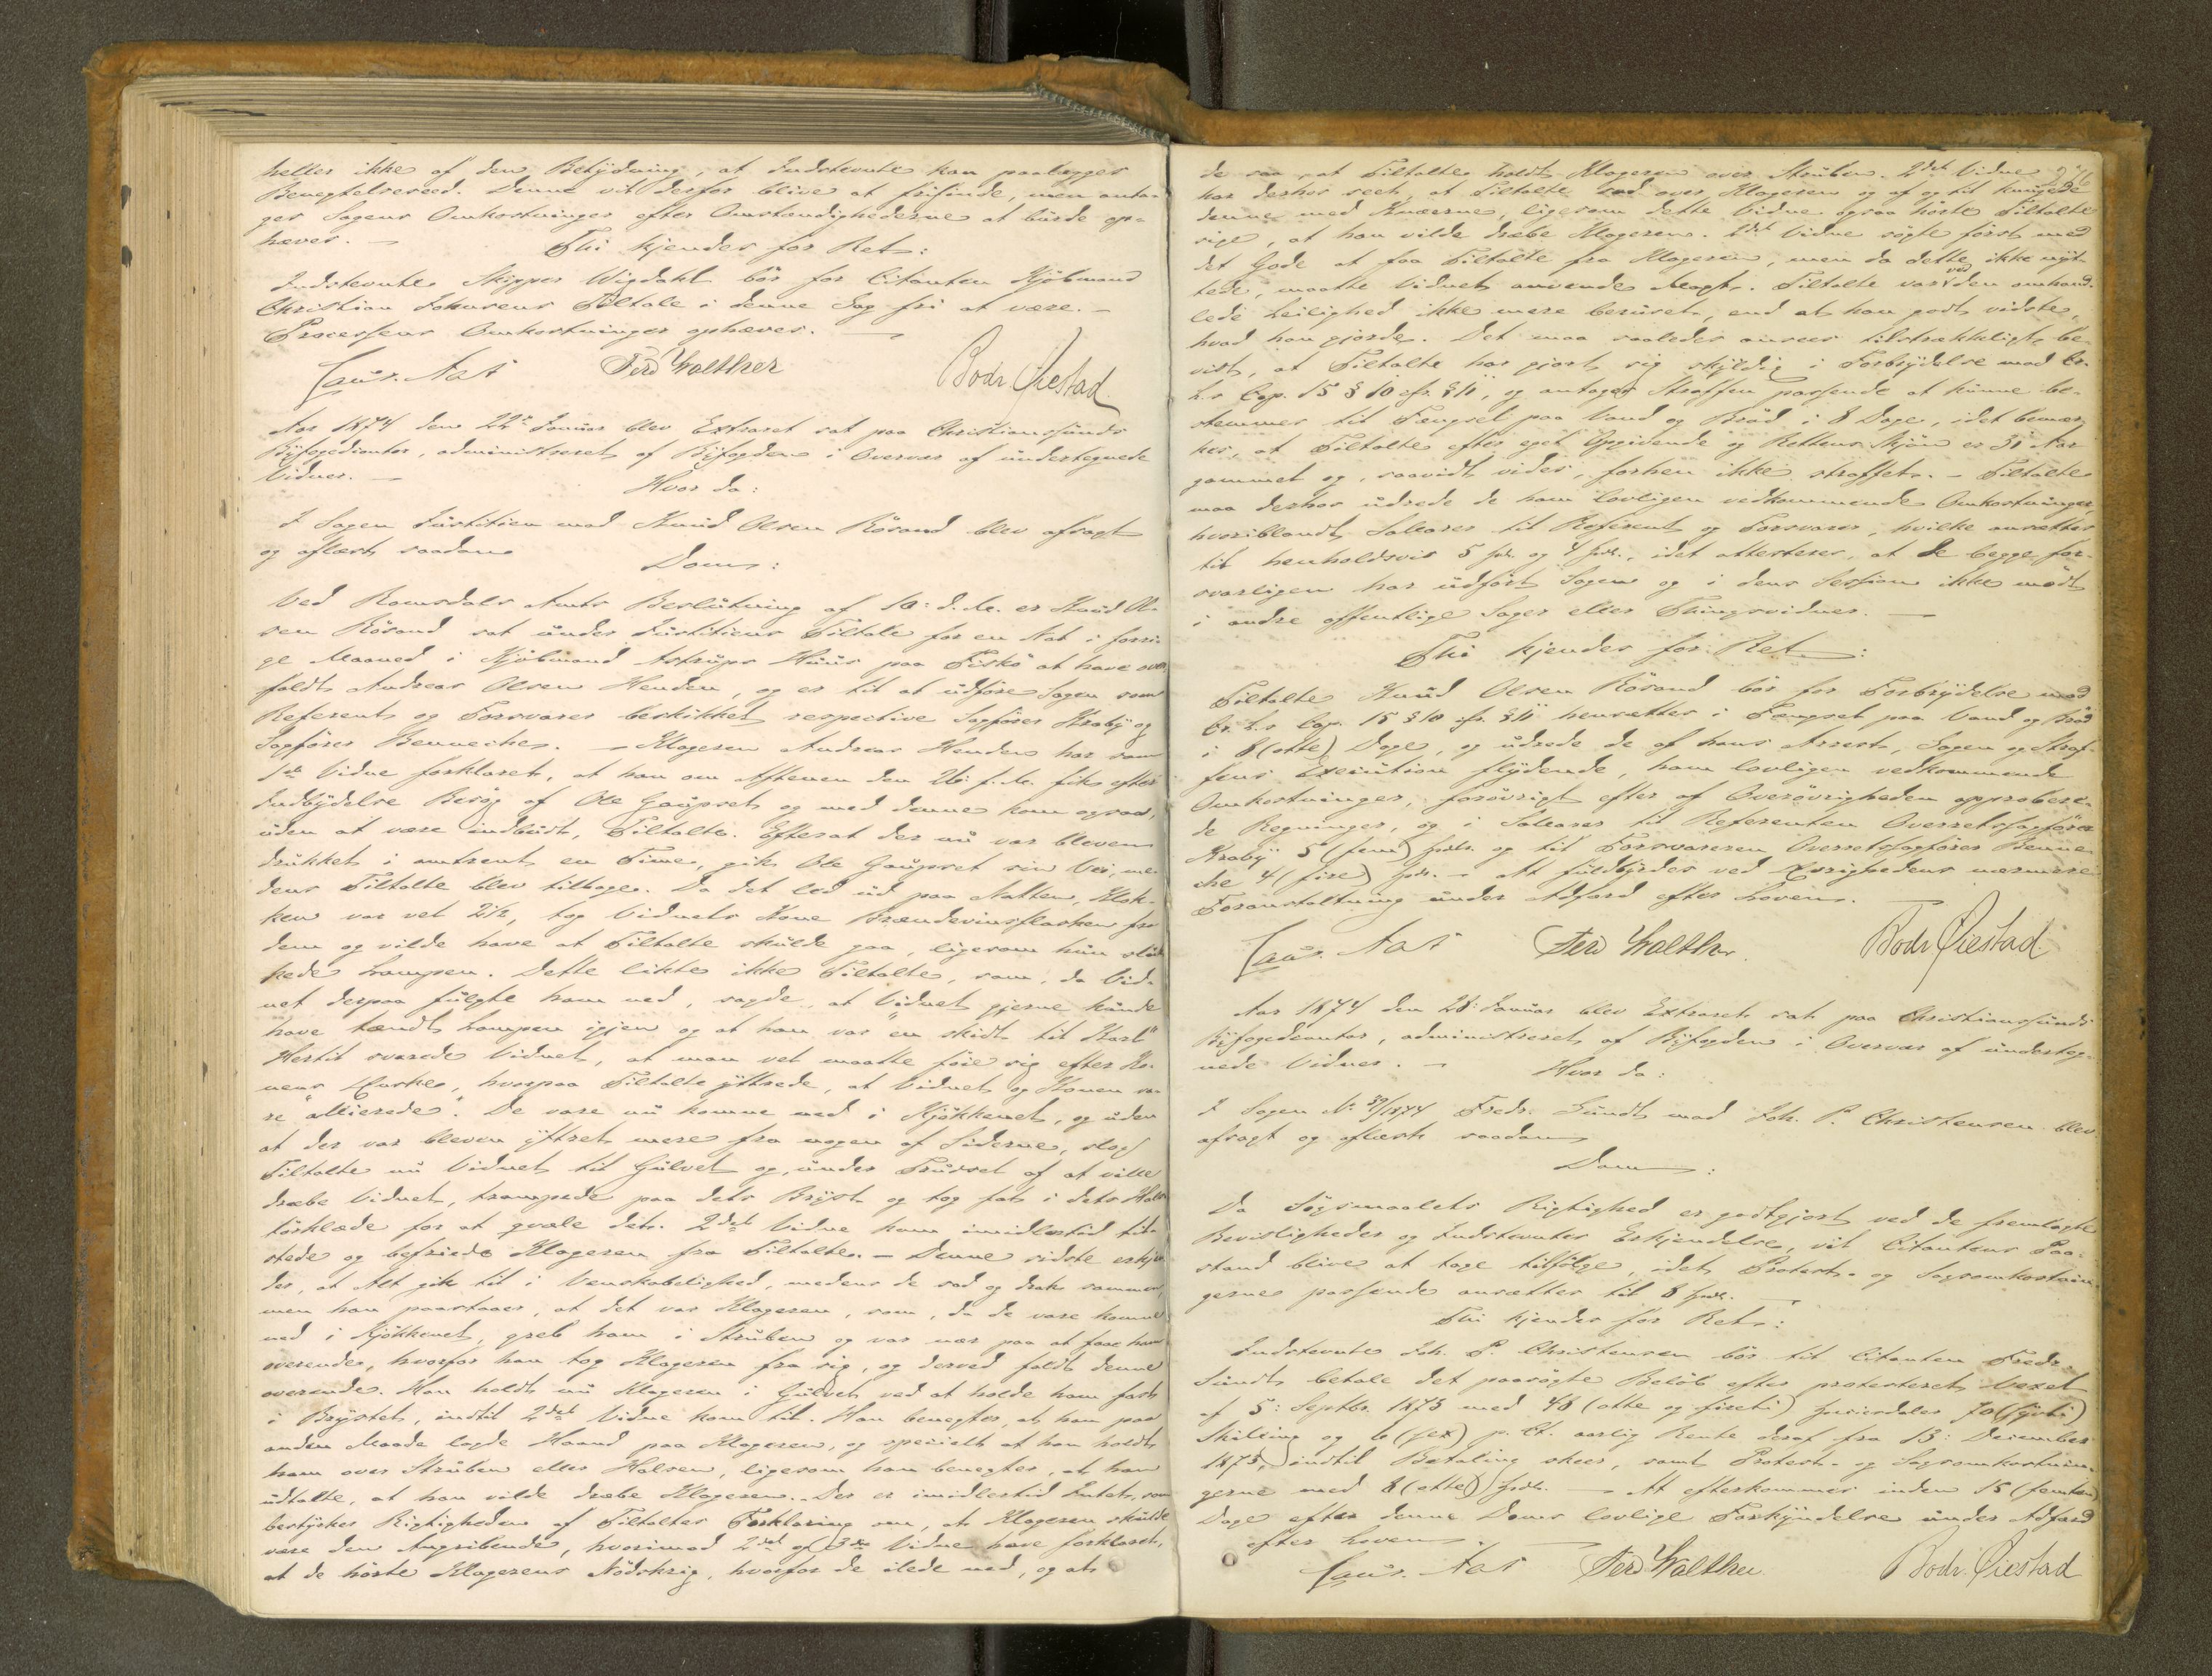 heller ikke af den Betydning, at Indstevnte kan paalægges
Benegtelseseed. Denne vil derfor blive at frifinde, men anta-
ges Sagens Omkostninger efter Omstændighederne at burde op-
hæves. —
Thi kjendes for Ret:
Indstevnte Skipper Wigdahl bör for Citanten Kjöbmand
Christian Johnsens Tiltale i denne Sag fri at være. —
Processens Omkostninger ophæves. —
Laur. Aas Ferd Walther Bodr. Øiestad
Aar 1874 den 22de Januar blev Extraret sat paa Christianssunds
Byfogedcontor, administreret af Byfogden i Overvær af undertegnede
Vidner. —
Hvor da:
I Sagen Justitien mod Knud Olsen Rösand blev afsagt
og aflæst saadan
Dom:
Ved Romsdals Amts Beslutning af 10: d. M. er Knud Ol-
sen Rösand sat under Justitiens Tiltale for en Nat i forri-
ge Maaned i Kjöbmand Astrups Huus paa Fiskö at have over-
faldt Andreas Olsen Henden, og er til at udföre Sagen som
Referent og Forsvarer beskikket respective Sagförer Kraby og
Sagförer Benneche. — Klageren Andreas Henden har som
1ste Vidne forklaret, at han om Aftenen den 26: f. M. fik efter
Indbydelse Besög af Ole Gaupset og med denne kom ogsaa,
uden at være indbudt, Tiltalte. Efterat der nu var bleven
drukket i omtrent en Time, gik Ole Gaupset sin Vei, me-
dens Tiltalte blev tilbage. Da det led ud paa Natten, Klok-
ken var vel 2 1/2, tog Vidnets Kone Brændevinsflasken fra
dem og vilde have at Tiltalte skulde gaa, ligesom hun sluk-
kede Lampen. Dette likte ikke Tiltalte, som, da Vid-
net derpaa fulgte ham ned, sagde, at Vidnet gjerne kunde
have tændt Lampen igjen og at han var "en skidt til Karl"
Hertil svarede Vidnet, at man vel maatte föie sig efter Ko-
nens Ønske, hvorpaa Tiltalte yttrede, at Vidnet og Konen va-
re "allierede". De vare nu komne ned i Kjökkenet, og uden
at der var bleven yttret mere fra nogen af Siderne, slog
Tiltalte nu Vidnet til Gulvet og, under Trusel af at ville
dræbe Vidnet, trampede paa dets Bryst og tog fat i dets Hals-
törklæde for at qvæle det. 2det Vidne kom imidlertid til-
stede og befriede Klageren fra Tiltalte. — Denne sidste erkjen-
der, at Alt gik til i Venskabelighed, medens de sad og drak sammen,
men han paastaaer, at det var Klageren, som, da de vare komne
ned i Kjökkenet, greb ham i Struben og var nær paa at faae ham
overende, hvorfor han tog Klageren fra sig, og derved faldt denne
overende. Han holdt nu Klageren i Gulvet ved at holde ham fast
i Brystet, indtil 2det Vidne kom til. Han benegter, at han paa
anden Maade lagde Haand paa Klageren, og specielt at han holdt
ham over Struben eller Halsen, ligesom han benegter, at han
udtalte, at han vilde dræbe Klageren. Der er imidlertid Intet, som
bestyrker Rigtigheden af Tiltaltes Forklaring om, at Klageren skulde
være den Angribende, hvorimod 2det og 3die Vidne have forklaret,
at de hörte Klagerens Nödskrig, hvorfor de ilede ned, og at
de saa, at Tiltalte holdt Klageren over Struben. 2det Vidne
har derhos seet, at Tiltalte sad over Klageren og af og til knugede
denne med Knæerne, ligesom dette Vidne ogsaa hörte Tiltalte
sige, at han vilde dræbe Klageren. 2det Vidne sögte först med
det Gode at faa Tiltalte fra Klageren, men da dette ikke nyt-
tede, maatte Vidnet anvende Magt. Tiltalte var ved den omhand-
lede Leilighed ikke mere beruset, end at han godt vidste,
hvad han gjorde. Det maa saaledes ansees tilstrækkeligt be-
vist, at Tiltalte har gjort sig skyldig i Forbrydelse mod Cr.
L.s Cap. 15 § 10 cfr. § 11, og antages Straffen passende at kunne be-
stemmes til Fængsel paa Vand og Bröd i 8 Dage, idet bemær-
kes, at Tiltalte efter eget Opgivende og Rettens Skjön er 31 Aar
gammel og, saavidt vides, forhen ikke straffet. — Tiltalte
maa derhos udrede de ham lovligen vedkommende Omkostninger,
hvoriblandt Salarer til Referent og Forsvarer, hvilke ansættes
til henholdsvis 5 Spd. og 4 Spd., idet attesteres, at de begge for-
svarligen har udfört Sagen og i dens Session ikke mödt
i andre offentlige Sager eller Thingsvidner. —
Thi kjendes for Ret:
Tiltalte Knud Olsen Rösand bör for Forbrydelse mod
Cr. L.s Cap. 15 § 10 cfr. § 11 hensættes i Fængsel paa Vand og Bröd
i 8 (otte) Dage, og udrede de af hans Arrest, Sagen og Straf-
fens Execution flydende, ham lovligen vedkommende
Omkostninger, forövrigt efter af Overövrigheden approbere-
de Regninger, og i Salarer til Referenten Overretssagförer
Kraby 5 (fem) Spdlr. og til Forsvareren Overretssagförer Benne-
che 4 (fire) Spd. — At fuldbyrdes ved Övrighedens nærmere
Foranstaltning under Adfærd efter Loven. —
Laur. Aas Ferd Walther Bodr Øiestad
Aar 1874 den 28: Januar blev Extraret sat paa Christianssunds
Byfogedcontor, administreret af Byfogden i Overvær af underteg-
nede Vidner. —
Hvor da:
I Sagen No. 39/1874 Fredr. Sundt mod Joh. P. Christensen blev
afsagt og aflæst saadan
Dom:
Da Sögsmaalets Rigtighed er godtgjort ved de fremlagte
Bevisligheder og Indstevntes Erkjendelse, vil Citantens Paa-
stand blive at tage tilfölge, idet Protest- og Sagsomkostnin-
gerne passende ansættes til 8 Spd. —
Thi kjendes for Ret:
Indstevnte Joh. P. Christensen bör til Citanten Fredr.
Sundt betale det paasögte Belöb efter protesteret Vexel
af 5: Septbr. 1873 med 48 (otte og fireti) Speciedaler 70 (sytti)
Skilling og 6 (sex) p. Ct. aarlig Rente deraf fra 13: December
1873, indtil Betaling skeer, samt Protest- og Sagsomkostnin-
gerne med 8 (otte) Spdl. — At efterkommes inden 15 (femten)
Dage efter denne Doms lovlige Forkyndelse under Adfærd
efter Loven. —
Laur. Aas Ferd Walther Bodr. Øiestad